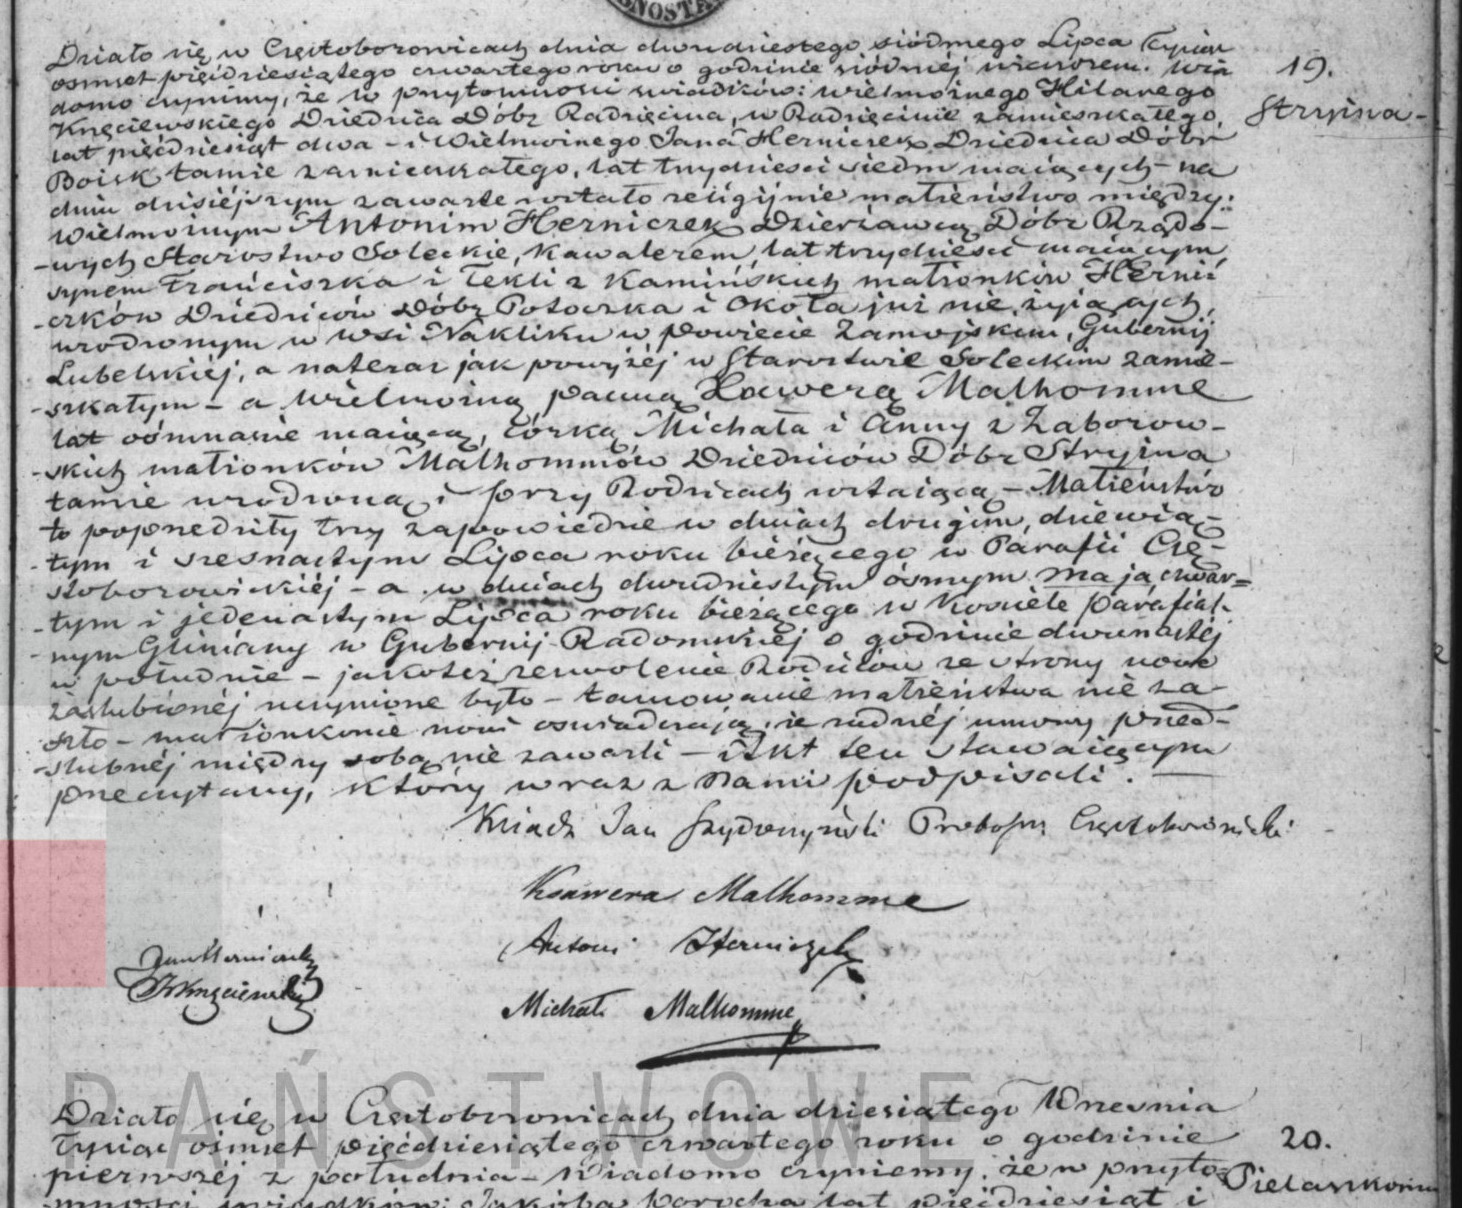 Działo się w Częstoborowicach dnia dwudziestego siódmego Lipca tysiąc
ośmset pięćdziesiątego czwartego roku o godzinie siódméj wieczorem. Wia
domo czynimy, że w przytomności świadków: wielmożnego Hilarego
Kręciewskiego Dziedzica Dóbr Radzięcina, w Radzięcinie zamieszkałego,
lat pięćdziesiąt dwa – i Wielmożnego Jana Herniczek Dziedzica Dóbr
tamże zamieszkałego, lat trzydzieści siedm maiących – na
dniu dzisiéjszym zawarte zostało religijnie małżeństwo między:
Wielmożnym Antonim Herniczek Dzierżawcą Dóbr Rządo-
-wych Starostwo Soleckie, Kawalerem lat trzydzieści maiącym
synem Franciszka i Tekli z Kamińskich małżonków Herni
-czków Dziedziców Dóbr Potoczka i Okoła już nie żyiących,
urodzonym w wsi Nakliku w powiecie Zamojskim, Gubernij
Lubelskiéj, a na teraz jak powyżéj w Starostwie Soleckim zamie-
-szkałym – a Wielmożną panną Xawerą Malhomme
lat ośmnaście maiącą, córką Michała i Anny z Zaborow-
-skich małżonków Malhommów Dziedziców Dóbr Stryjna
tamże urodzoną i przy Rodzicach zostaiącą – Małżeństwo
to poprzedziły trzy zapowiedzie w dniach drugim, dziewią-
-tym i szesnastym Lipca roku bieżącego w Parafii Czę-
stoborowickiéj – a w dniach dwudziestym ósmym maja czwar=
-tym i jedenastym Lipca roku bieżącego w Kościele parafial-
-nym Gliniany w Gubernij Radomskiéj o godzinie dwunastéj
w południe – jakoteż zezwolenie Rodziców ze strony nowo
zaślubionéj uczynione było – tamowanie małżeństwa nie za-
szło – małżonkowie nowi oświadczają, że żadnéj umowy przed-
-ślubnéj między sobą nie zawarli – Akt ten stawaiącym
przeczytany, który wraz z Nami podpisali. —
Ksiądz Jan Proboszcz Częstoborowicki
Ksawera Malhomme
Antoni Herniczek
Jan Herniczek
Michał Malhomme
19.
Stryjna –
PAŃSTWOWE
Działo się w Częstoborowicach dnia dziesiątego Września
tysiąc ośmset pięćdziesiątego czwartego roku o godzinie
pierwszéj z południa – Wiadomo czyniemy, że w przyto-
mności świadków: Jakóba lat pięćdziesiąt i
20.